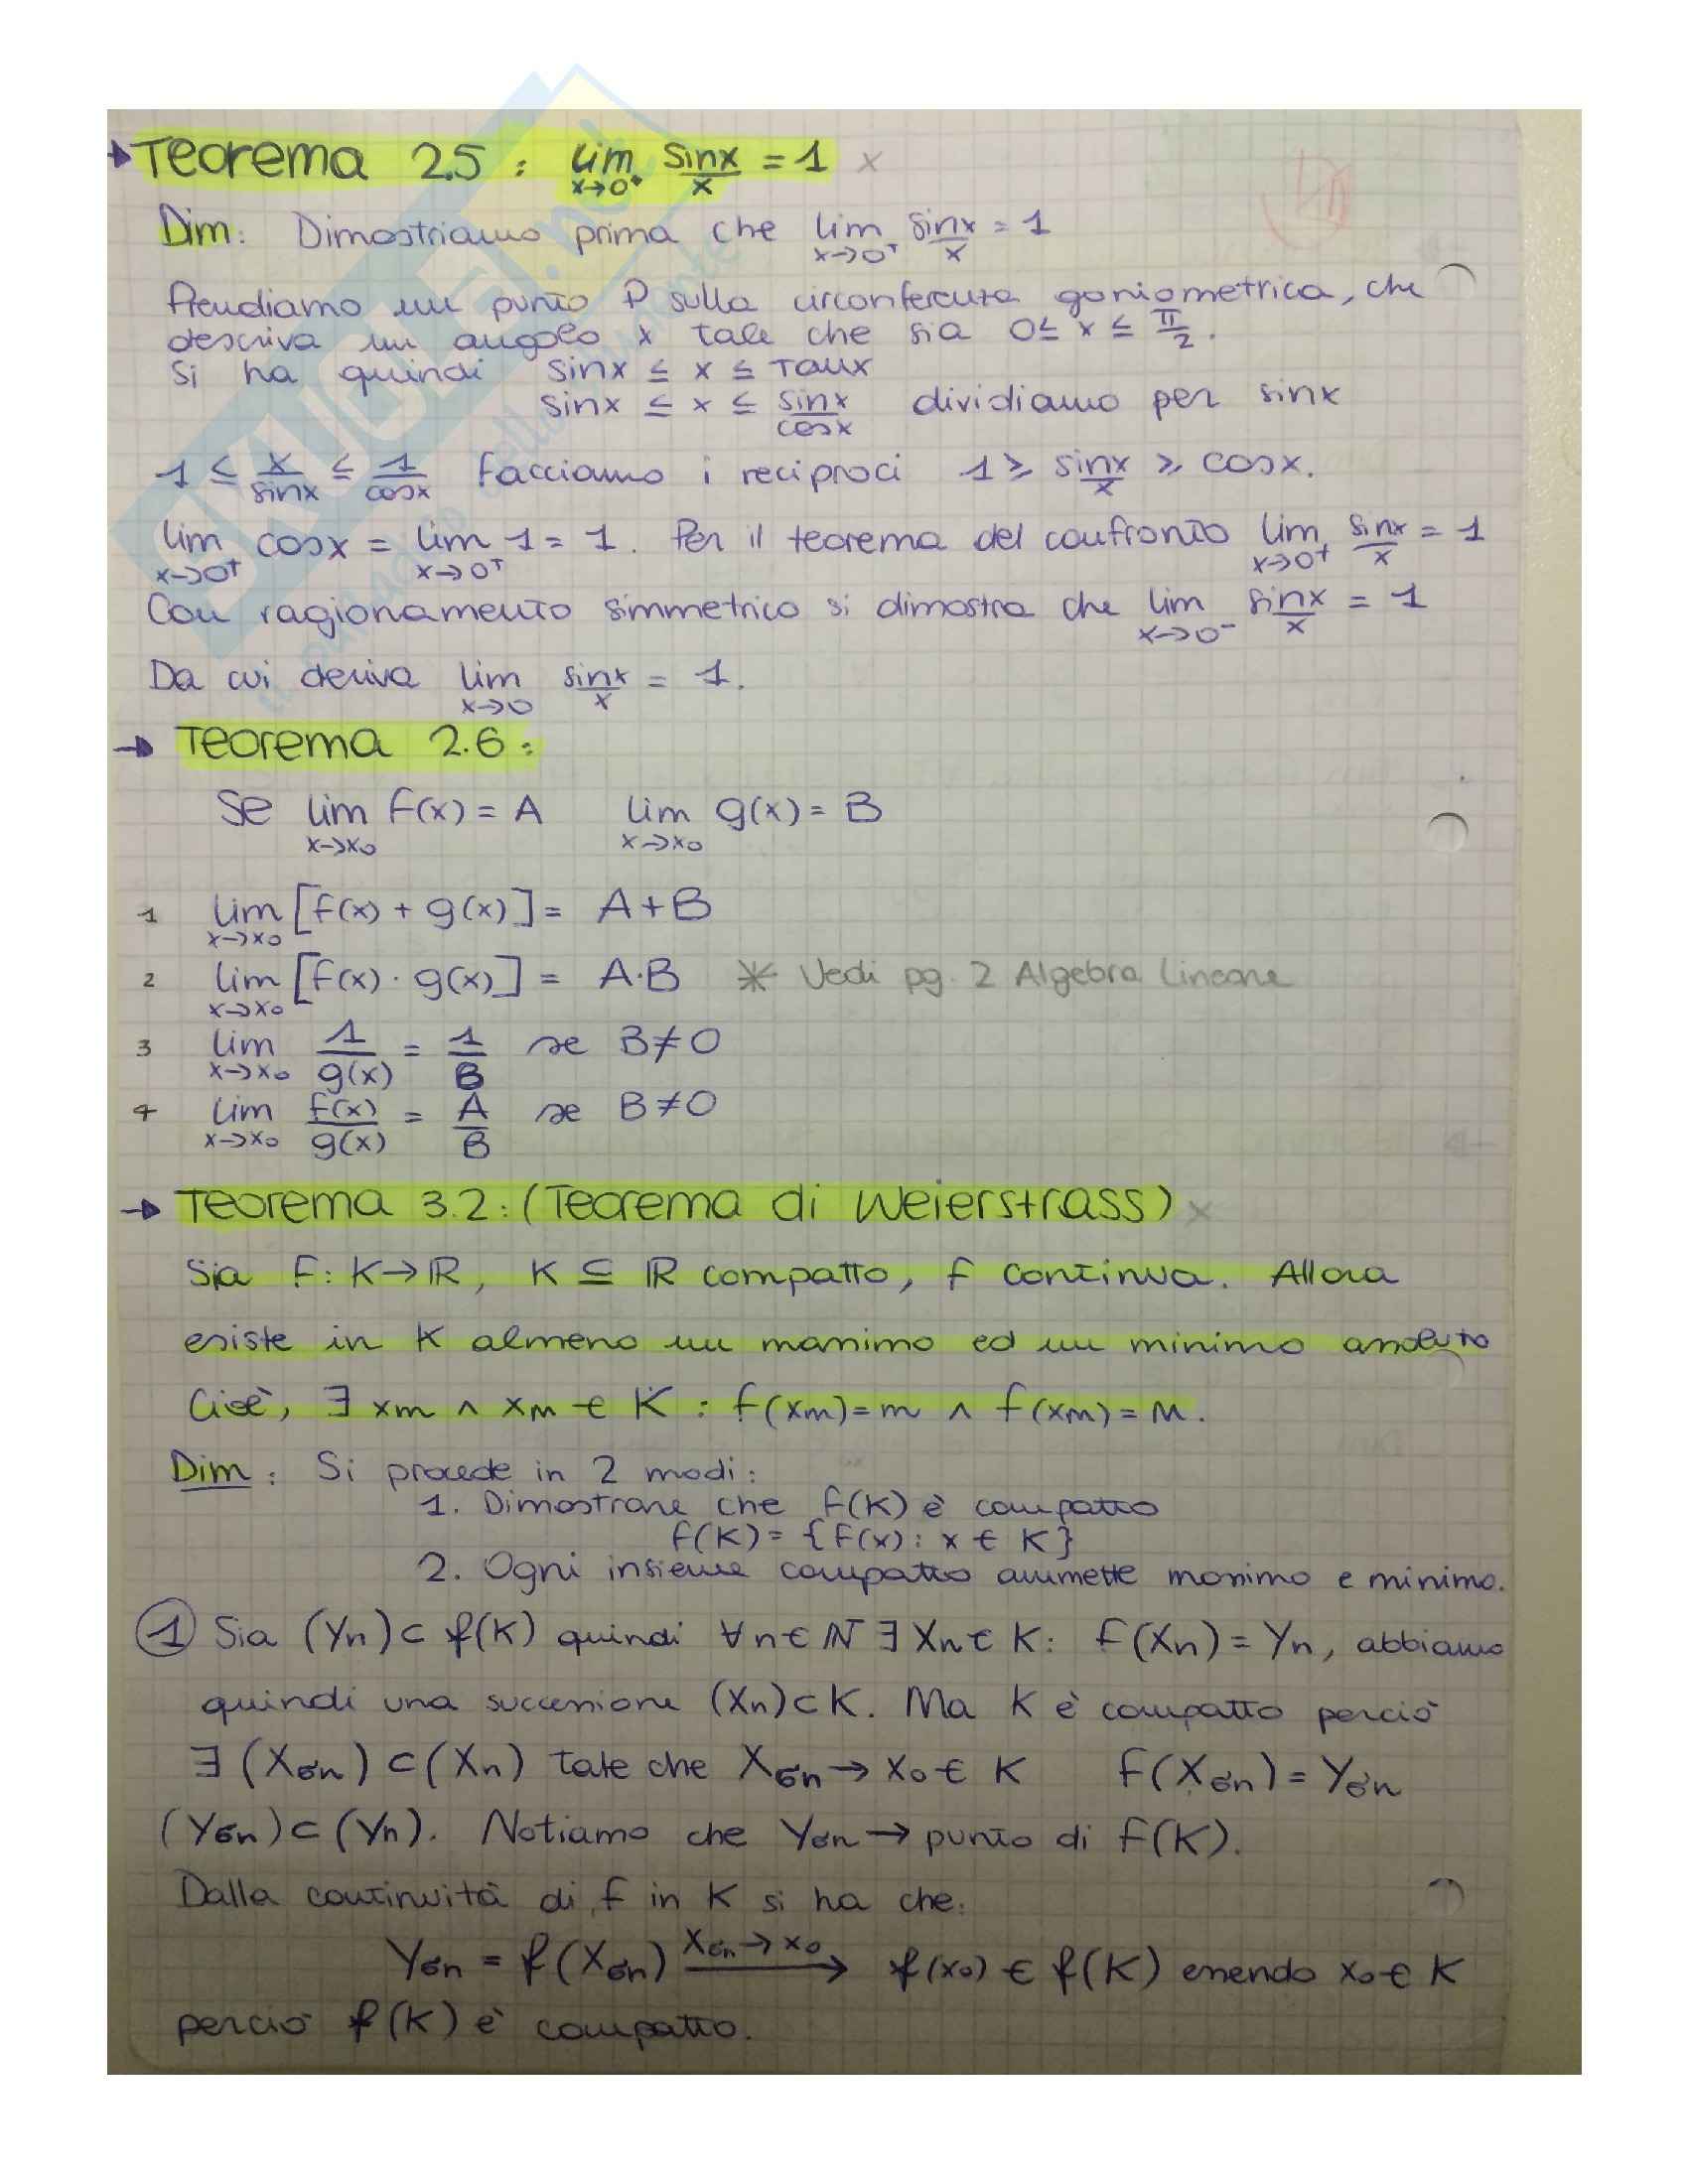 → Teorema 2.5: lim x→0⁺ sinx/x = 1 ×
Dim: Dimostriamo prima che lim x→0⁺ sinx/x = 1
Prendiamo un punto P sulla circonferenza goniometrica, che
descriva un angolo x tale che sia 0 ≤ x ≤ π/2.
Si ha quindi sinx ≤ x ≤ Tanx
sinx ≤ x ≤ sinx/cosx dividiamo per sinx
1 ≤ x/sinx ≤ 1/cosx Facciamo i reciproci 1 ≥ sinx/x ≥ cosx.
lim x→0⁺ cosx = lim x→0⁺ 1 = 1. Per il teorema del confronto lim x→0⁺ sinx/x = 1
Con ragionamento simmetrico si dimostra che lim x→0⁻ sinx/x = 1
Da cui deriva lim x→0 sinx/x = 1.
→ Teorema 2.6:
Se lim x→x₀ f(x) = A lim x→x₀ g(x) = B
1 lim x→x₀ [f(x) + g(x)] = A+B
2 lim x→x₀ [f(x) · g(x)] = A·B * Vedi pg. 2 Algebra Lineare
3 lim x→x₀ 1/g(x) = 1/B se B≠0
4 lim x→x₀ f(x)/g(x) = A/B se B≠0
→ Teorema 3.2: (Teorema di Weierstrass) ×
Sia F: K→ℝ, K ⊆ ℝ compatto, f continua. Allora
esiste in K almeno un massimo ed un minimo assoluto
Cioè, ∃ xm ∧ xM ∈ K : f(xm)=m ∧ f(xM)=M.
Dim: Si procede in 2 modi:
1. Dimostrare che f(K) è compatto
f(K) = {f(x): x ∈ K}
2. Ogni insieme compatto ammette massimo e minimo.
① Sia (Yn) ⊂ f(K) quindi ∀n∈ℕ ∃ Xn ∈ K: f(Xn) = Yn, abbiamo
quindi una successione (Xn)⊂K. Ma K è compatto perciò
∃ (Xσn) ⊂ (Xn) tale che Xσn → x₀ ∈ K f(Xσn) = Yσn
(Yσn)⊂(Yn). Notiamo che Yσn → punto di f(K).
Dalla continuità di f in K si ha che:
Yσn = f(Xσn) Xσn→x₀ ⟶ f(x₀) ∈ f(K) essendo x₀ ∈ K
perciò f(K) è compatto.